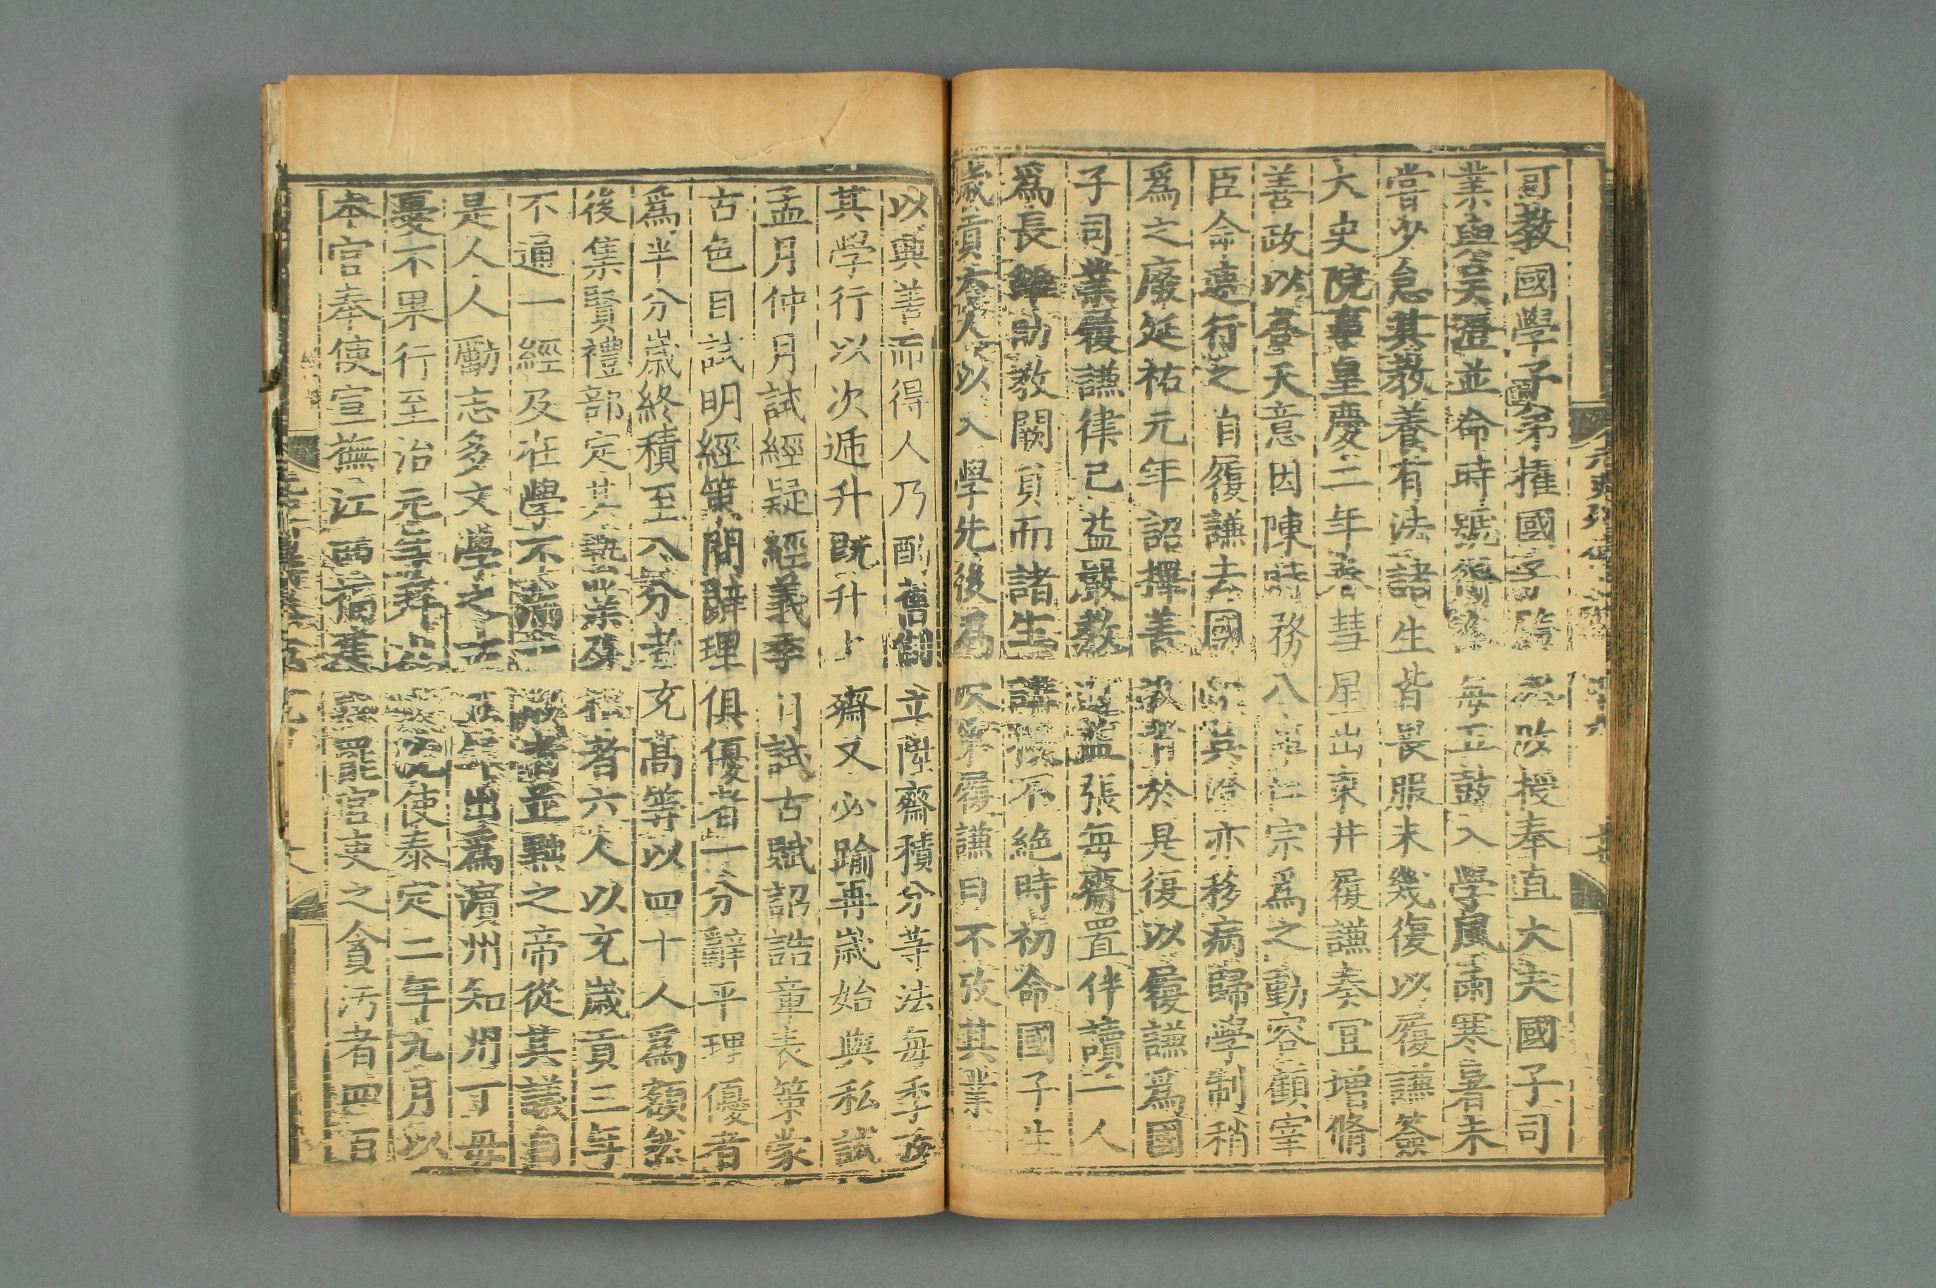 可教國學子弟擢國子監丞改授奉直大夫國子司
業與吳澄並命時號得人每五鼓入學風雨寒暑未
嘗少怠其教養有法諸生皆畏服未幾復以履謙僉
大史院事皇慶二年春彗星出東井履謙奏宜增脩
善政以荅天意因陳時務八事仁宗爲之動容顧宰
臣命速行之自履謙去國學吳澄亦移病歸學制稍
爲之廢延祐元年詔擇善教者於是復以履謙爲國
子司業履謙律己益嚴教道益張每齋置伴讀一人
爲長雖助教闕員而諸生講授不絶時初命國子生
歲貢六人以入學先後爲次第履謙曰不攷其業
以興善而得人乃酌舊制立陞齋積分等法每季攷
其學行以次逓升旣升上齋又必踰再歲始與私試
孟月仲月試經疑經義季月試古賦詔誥章表策蒙
古色目試明經策問辭理俱優者一分辭平理優者
爲半分歲終積至八分者充高等以四十人爲額然
後集賢禮部定其藝業及格者六人以充歲貢三年
不通一經及在學不滿一歲者並黜之帝從其議自
是人人勵志多文學之士五年出爲濱州知州丁母
憂不果行至治元年拜太史院使泰定二年九月以
本官奉使宣撫江西福建黜罷官吏之貪汚者四百